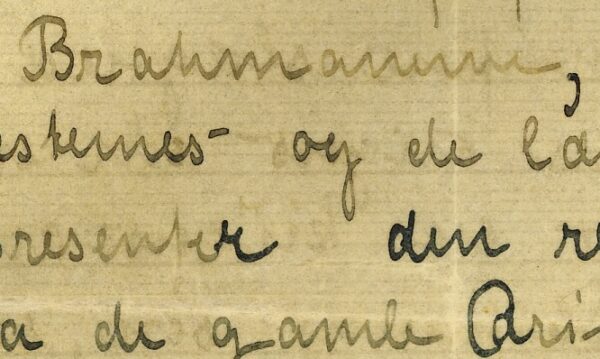 Brahmanerne,
esternes og de
resenter den re
a de gamle Ari-